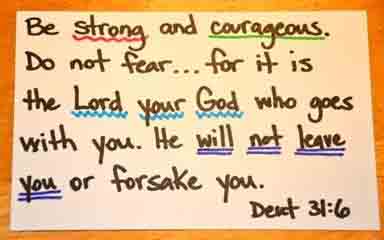 Be strong and courageous.
Do not fear... for it is
the Lord your God who goes
with you. He will not leave
you or forsake you.
Deut 31:6